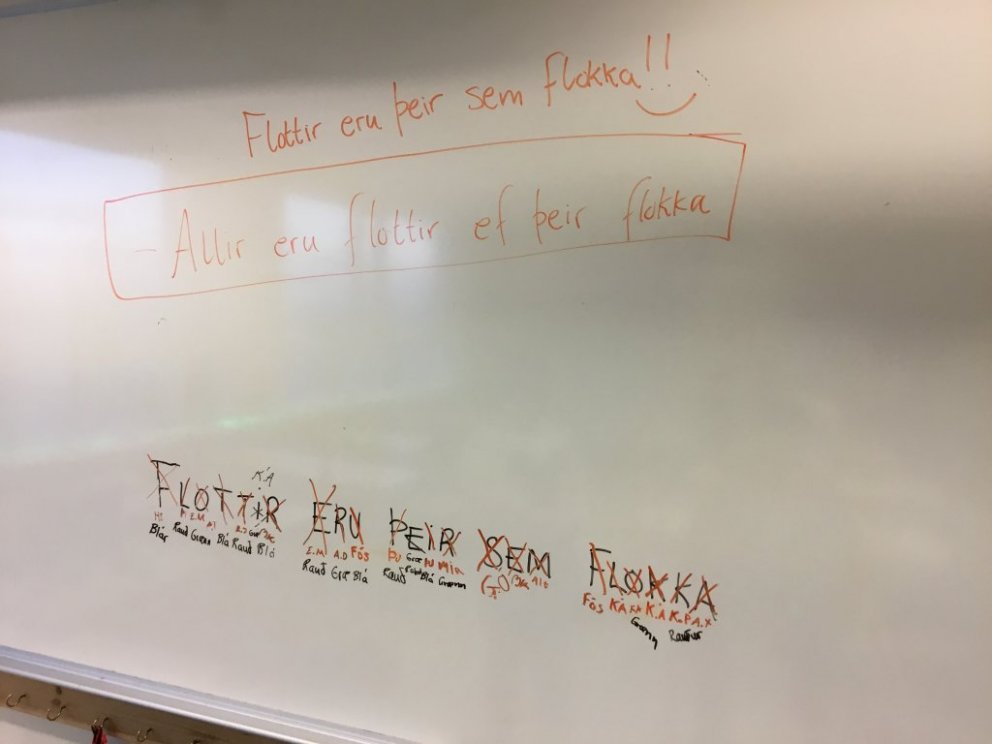 Flottir eru þeir sem flokka!!
- Allir eru flottir ef þeir flokka
K.A
FLOTTIR ERU ÞEIR SEM FLOKKA
E.M A.D Fós ÞU Min Fós K.A K.A
Blár Rauð Græn Blá Rauð Blá Rauð Græ Blá Rauð Blá Grænn
Græn Rauður